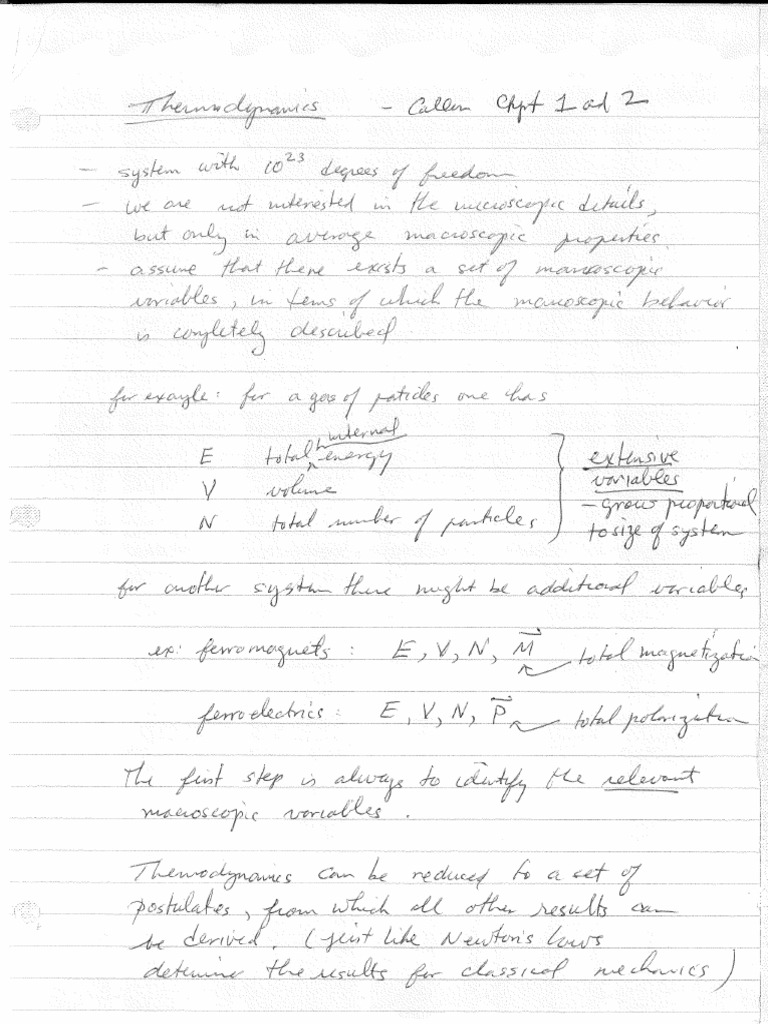 Thermodynamics - Callen Chpt 1 ad 2
- system with 10^23 degrees of freedom
- we are not interested in the microscopic details,
but only in average macroscopic properties.
- assume that there exists a set of macroscopic
variables, in terms of which the macroscopic behavior
is completely described
for example: for a gas of particles one has
internal
E total energy
V volume
N total number of particles
extensive
variables
- grow proportional
to size of system
for another system there might be additional variables
ex: ferromagnets: E, V, N, M⃗ total magnetization
ferroelectrics: E, V, N, P⃗ total polarization
The first step is always to identify the relevant
macroscopic variables.
Thermodynamics can be reduced to a set of
postulates, from which all other results can
be derived. (just like Newton's laws
determine the results for classical mechanics)